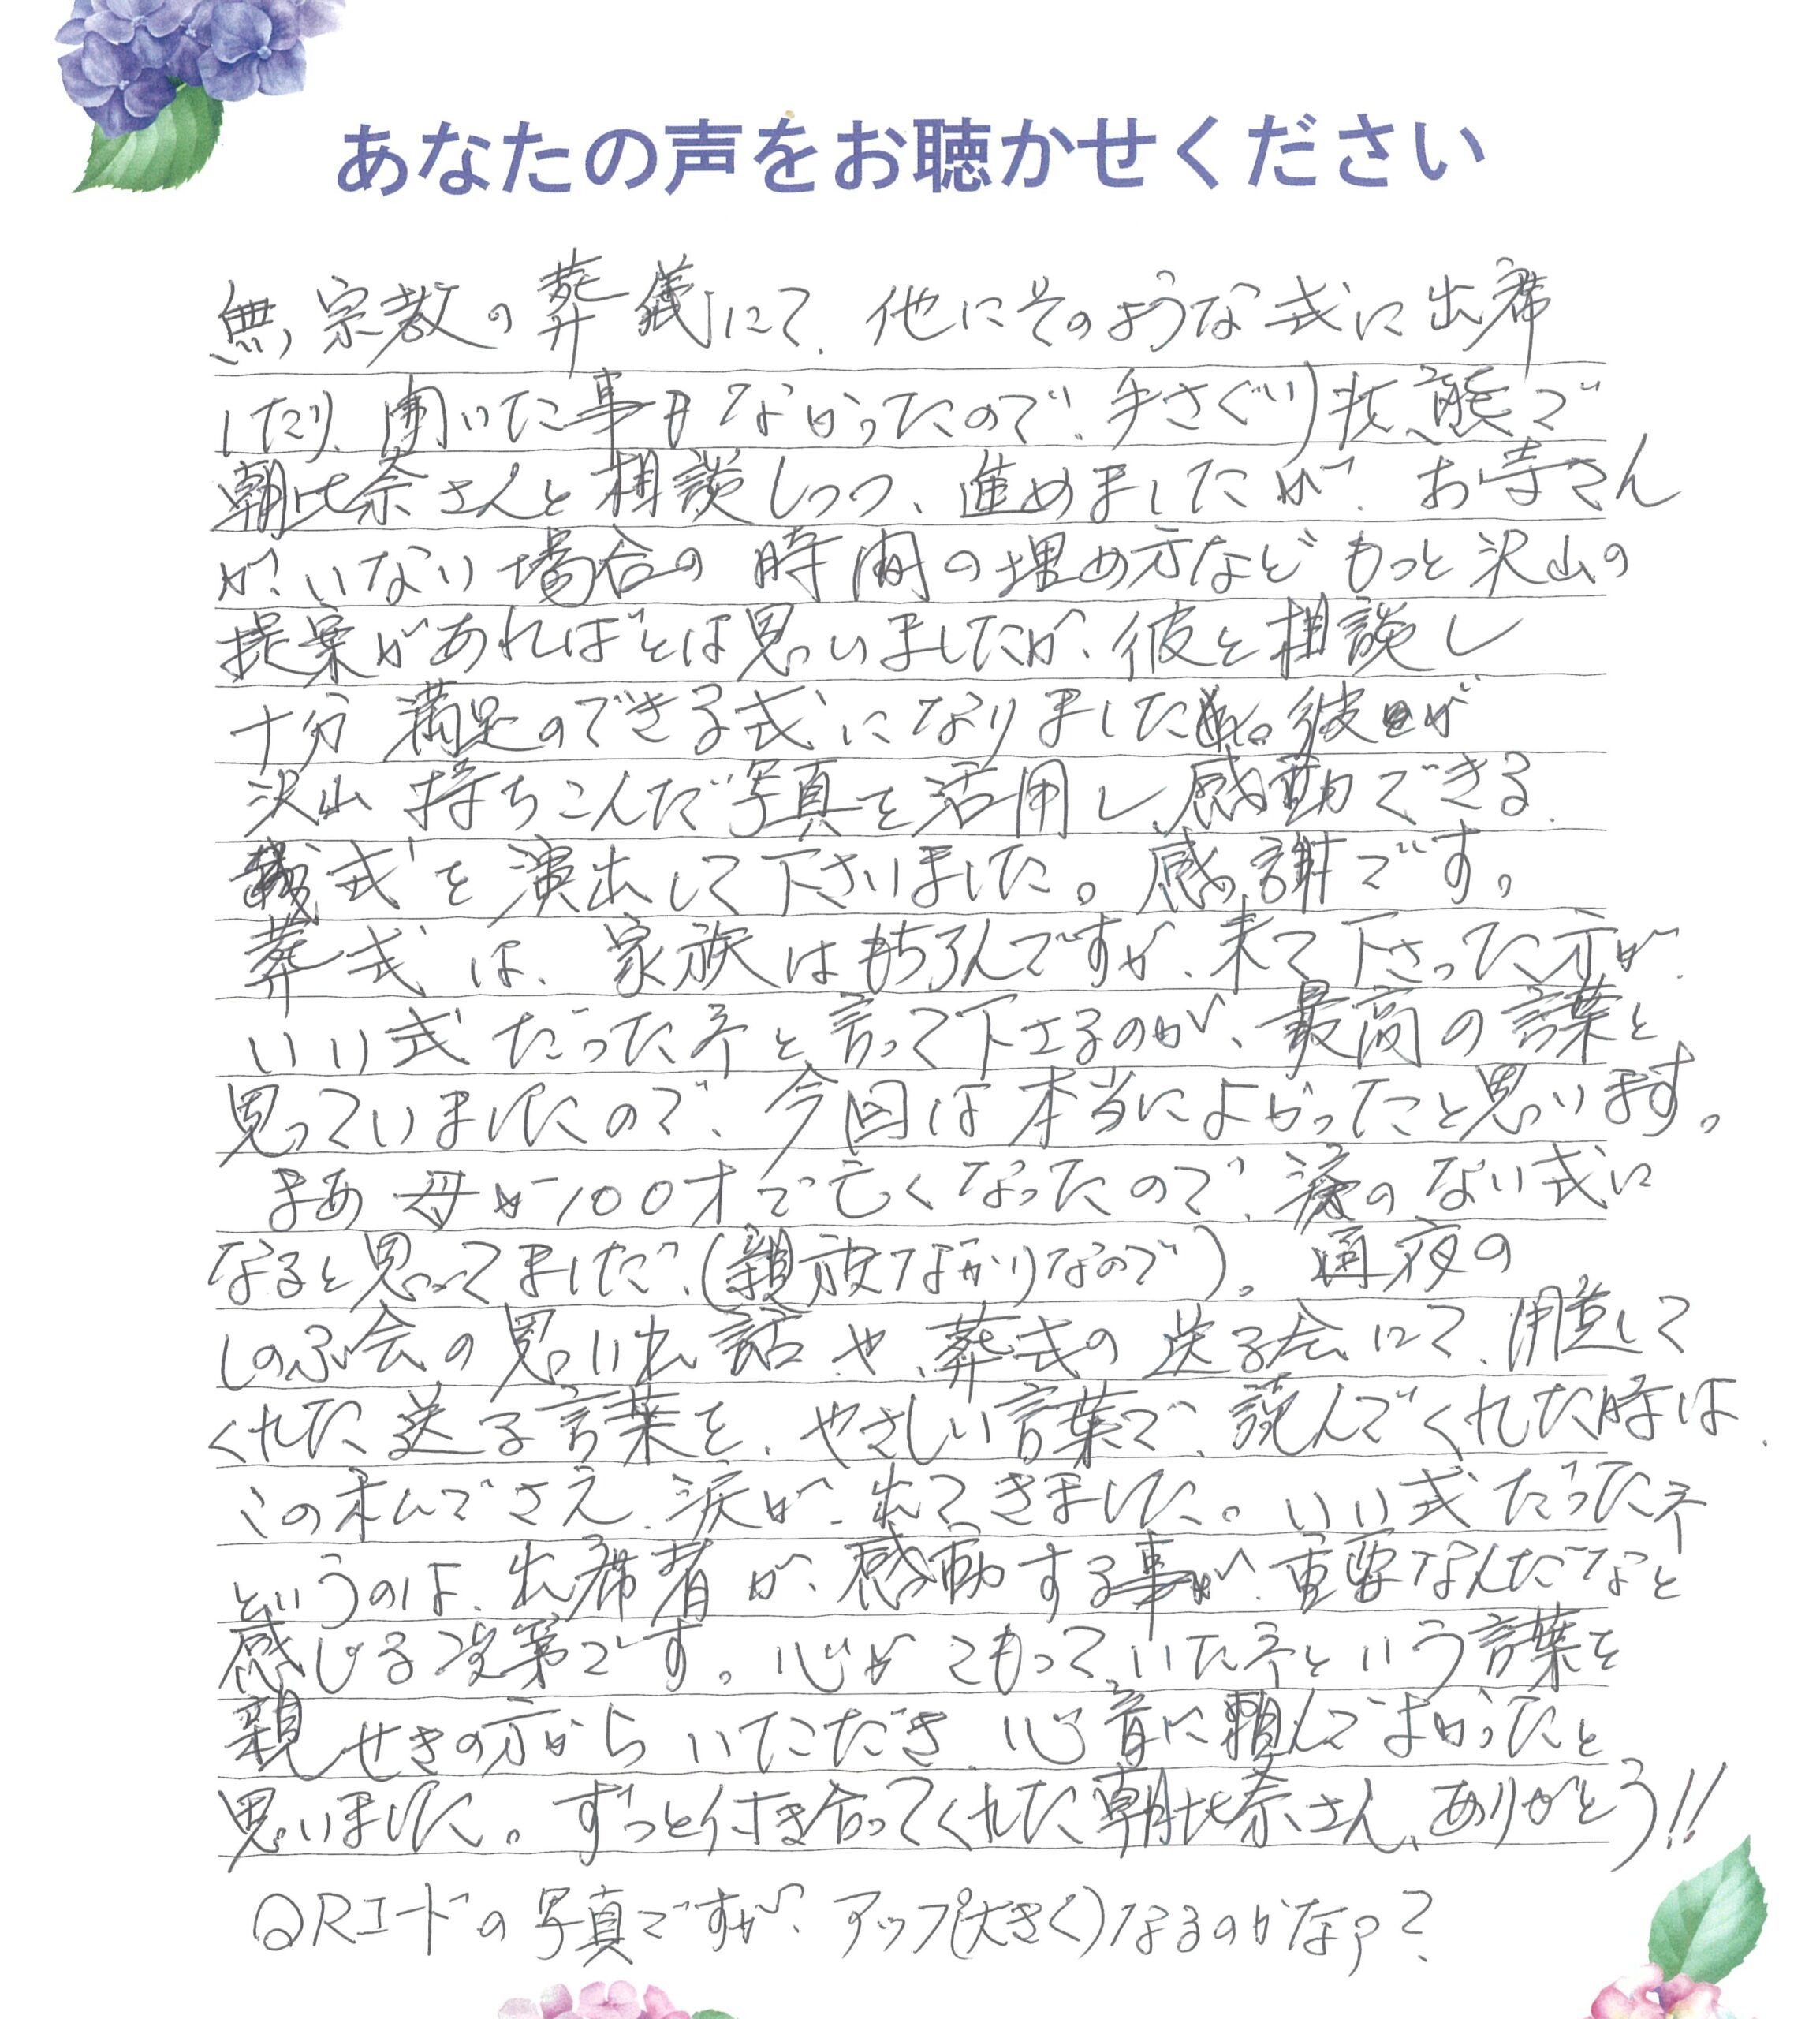 あなたの声をお聴かせください
無宗教の葬儀にて、他にそのような式に出席
したり、聞いた事もなかったので、手さぐり状態で
朝比奈さんと相談しつつ、進めましたが、お寺さん
が、いない場合の時間の埋め方など もっと沢山の
提案があればとは思いましたが、彼と相談し
十分満足のできる式になりました。彼が
沢山持ちこんだ写真を活用し、感動できる
式を演出して下さいました。感謝です。
葬式は、家族はもちろんですが、来て下さった方が、
いい式だったネと言って下さるのが、最高の言葉と
思っていましたので、今回は本当によかったと思います。
まあ母が100才で亡くなったので、涙のない式に
なると思ってました、(親族ばかりなので)。通夜の
しのぶ会の思い出話や、葬式の送る会にて、用意して
くれた送る言葉を、やさしい言葉で、読んでくれた時は、
この私でさえ、涙が、出てきました。いい式だったネ
というのは、出席者が、感動する事が、重要なんだなと
感じる次第です。心がこもって、いたネという言葉を
親せきの方から いただき、心音に頼んでよかったと
思いました。ずっと付き合ってくれた朝比奈さん、ありがとう!!
QRコードの写真ですが、アップ(大きく)なるのかなァ?